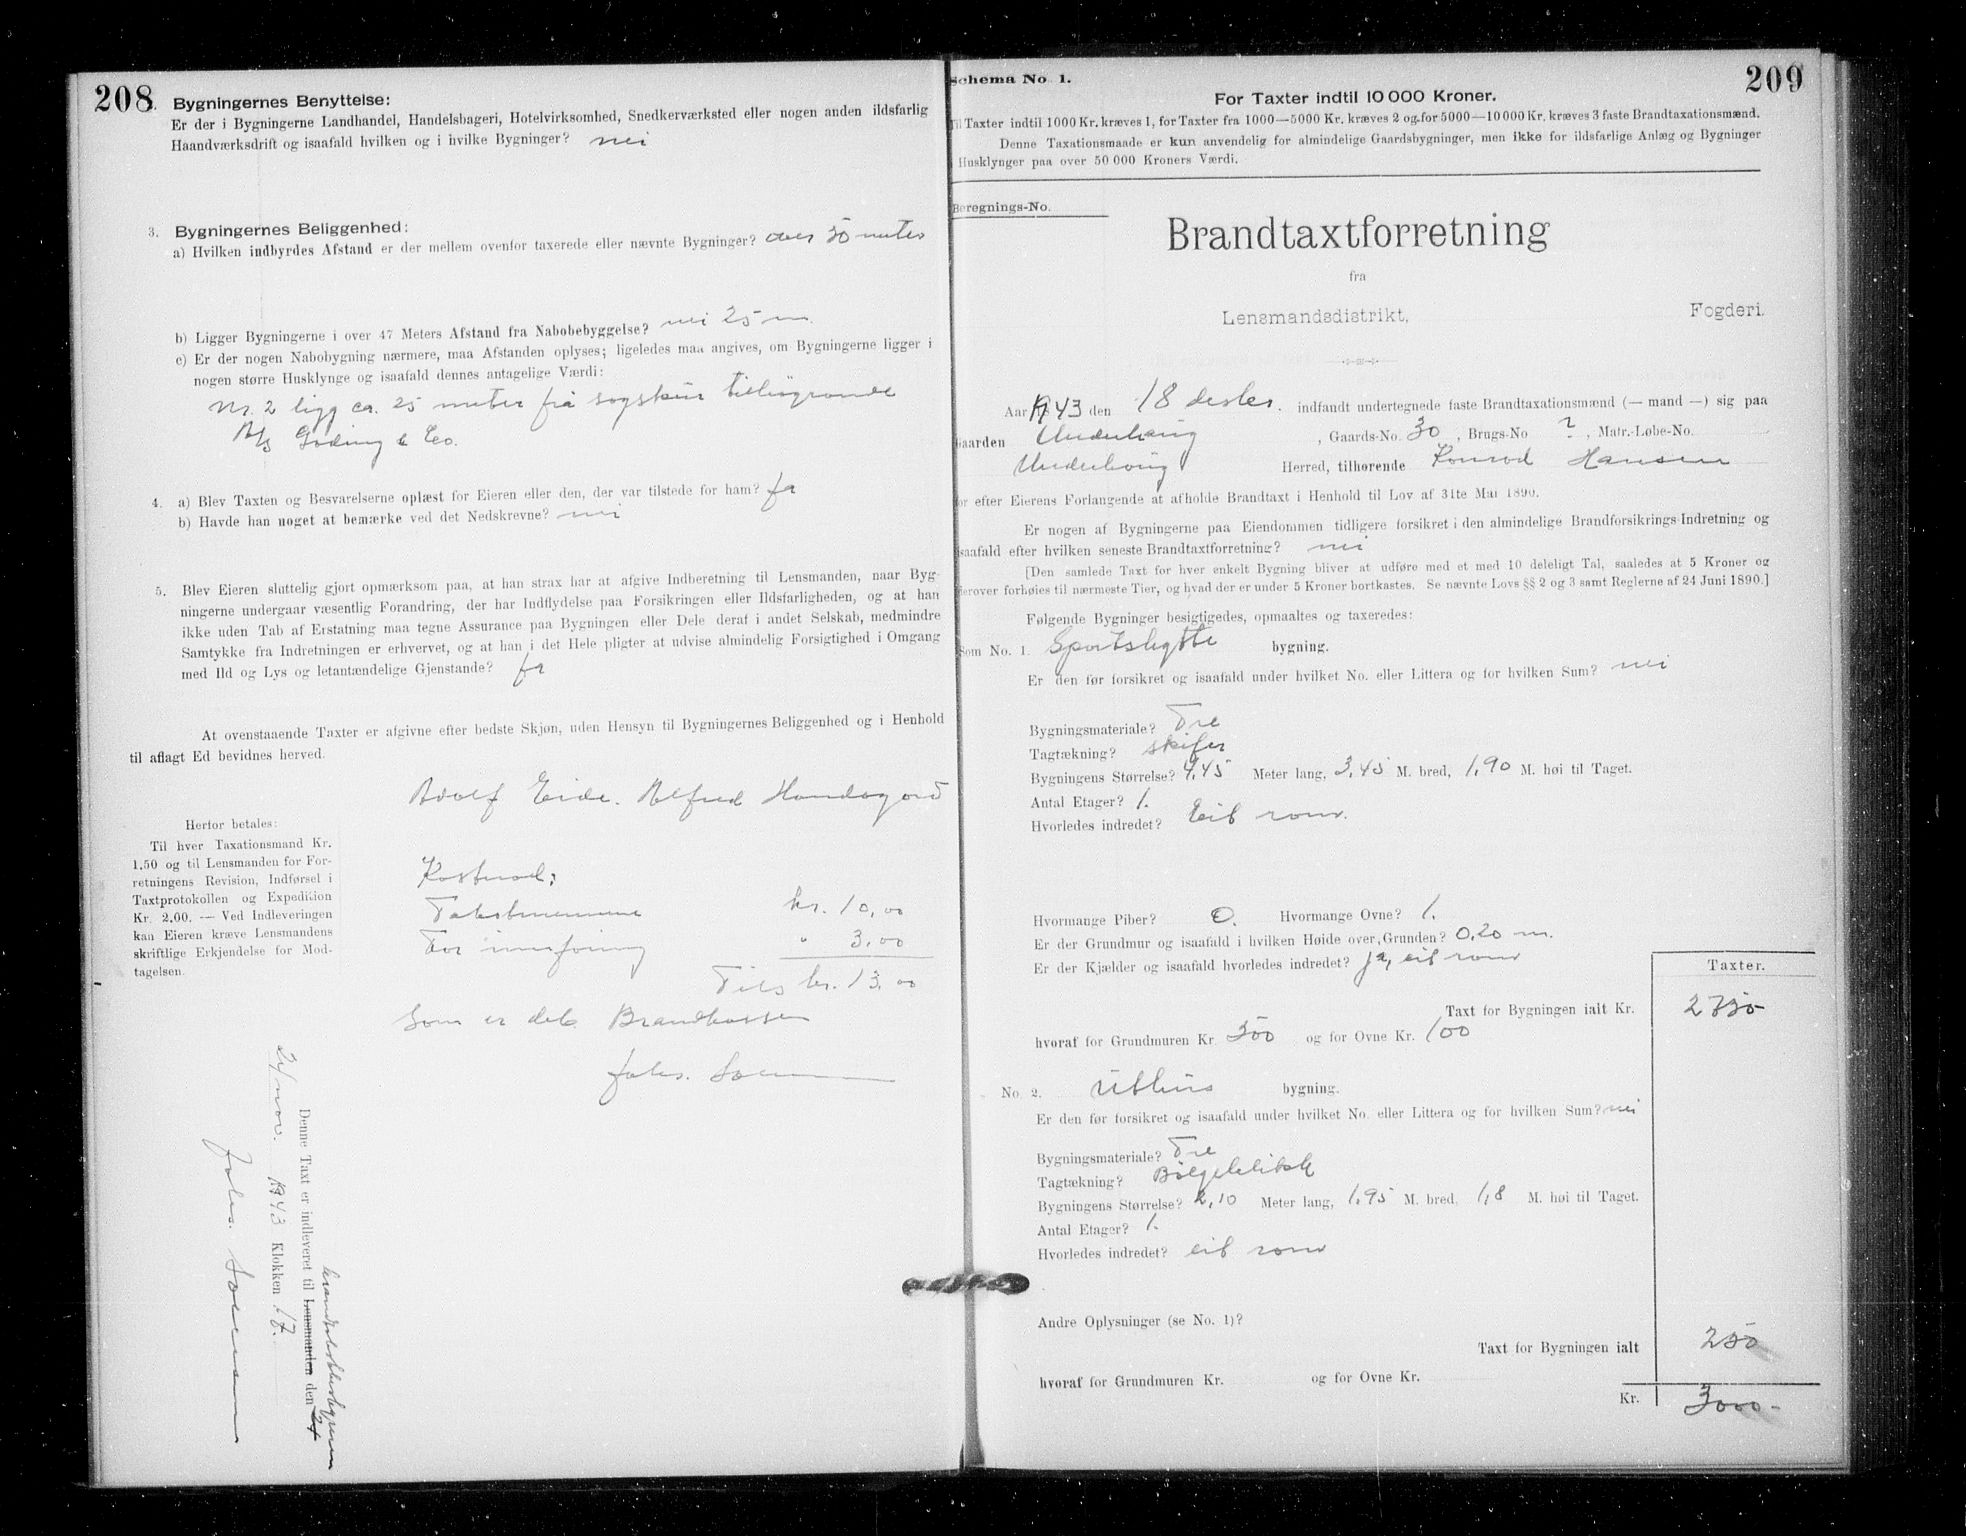 208.
Bygningernes Benyttelse:
Er der i Bygningerne Landhandel, Handelsbageri, Hotelvirksomhed, Snedkerværksted eller nogen anden ildsfarlig
Haandværksdrift og isaafald hvilken og i hvilke Bygninger? nei
3. Bygningernes Beliggenhed:
a) Hvilken indbyrdes Afstand er der mellem ovenfor taxerede eller nævnte Bygninger? over 50 meter
b) Ligger Bygningerne i over 47 Meters Afstand fra Nabobebyggelse? nei 25 m.
c) Er der nogen Nabobygning nærmere, maa Afstanden oplyses; ligeledes maa angives, om Bygningerne ligger i
nogen større Husklynge og isaafald dennes antagelige Værdi:
Nr. 2 ligg ca. 25 meter frå sagskur tilhøyrande
A/s & Co.
4. a) Blev Taxten og Besvarelserne oplæst for Eieren eller den, der var tilstede for ham? ja
b) Havde han noget at bemærke ved det Nedskrevne? nei
5. Blev Eieren sluttelig gjort opmærksom paa, at han strax har at afgive Indberetning til Lensmanden, naar Byg-
ningerne undergaar væsentlig Forandring, der har Indflydelse paa Forsikringen eller Ildsfarligheden, og at han
ikke uden Tab af Erstatning maa tegne Assurance paa Bygningen eller Dele deraf i andet Selskab, medmindre
Samtykke fra Indretningen er erhvervet, og at han i det Hele pligter at udvise almindelig Forsigtighed i Omgang
med Ild og Lys og letantændelige Gjenstande? ja
At ovenstaaende Taxter er afgivne efter bedste Skjøn, uden Hensyn til Bygningernes Beliggenhed og i Henhold
til aflagt Ed bevidnes herved.
Adolf Eide. Alfred
Herfor betales:
Til hver Taxationsmand Kr.
1.50 og til Lensmanden for For-
retningens Revision, Indførsel i
Taxtprotokollen og Expedition
Kr. 2.00. — Ved Indleveringen
kan Eieren kræve Lensmandens
skriftlige Erkjendelse for Mod-
tagelsen.
Kostnad:
Takstmennene kr. 10,00
For innføring " 3,00
Tils kr. 13,00
Som er bet. Brandkassen
Johs.
Denne Taxt er indleveret til Lensmanden den 24
brandstyre
24/nov. 1943 Klokken 17.
Johs.
Schema No. 1.
209
For Taxter indtil 10 000 Kroner.
Til Taxter indtil 1000 Kr. kræves 1, for Taxter fra 1000—5000 Kr. kræves 2 og for 5000—10 000 Kr. kræves 3 faste Brandtaxationsmænd.
Denne Taxationsmaade er kun anvendelig for almindelige Gaardsbygninger, men ikke for ildsfarlige Anlæg og Bygninger
Husklynger paa over 50 000 Kroners Værdi.
Beregnings-No.
Brandtaxtforretning
fra
Lensmandsdistrikt, Fogderi.
Aar 1943 den 18 indfandt undertegnede faste Brandtaxationsmænd (— mand —) sig paa
Gaarden Underhaug, Gaards-No. 30, Brugs-No ?, Matr.-Løbe-No.
Herred, tilhørende Konrad Hansen
for efter Eierens Forlangende at afholde Brandtaxt i Henhold til Lov af 31te Mai 1890.
Er nogen af Bygningerne paa Eiendommen tidligere forsikret i den almindelige Brandforsikrings-Indretning og
isaafald efter hvilken seneste Brandtaxtforretning? nei
[Den samlede Taxt for hver enkelt Bygning bliver at udføre med et med 10 deleligt Tal, saaledes at 5 Kroner og
derover forhøies til nærmeste Tier, og hvad der er under 5 Kroner bortkastes. Se nævnte Lovs §§ 2 og 3 samt Reglerne af 24 Juni 1890.]
Følgende Bygninger besigtigedes, opmaaltes og taxeredes:
Som No. 1. Sportshytte bygning.
Er den før forsikret og isaafald under hvilket No. eller Littera og for hvilken Sum? nei
Bygningsmateriale? Tre
Tagtækning? skifer
Bygningens Størrelse? 4,45 Meter lang, 3,45 M. bred, 1,90 M. høi til Taget.
Antal Etager? 1.
Hvorledes indredet? Eit rom.
Hvormange Piber? 0. Hvormange Ovne? 1.
Er der Grundmur og isaafald i hvilken Høide over Grunden? 0,20 m.
Er der Kjælder og isaafald hvorledes indredet? ja, eit rom
Taxter.
Taxt for Bygningen ialt Kr. 2750-
hvoraf for Grundmuren Kr. 300 og for Ovne Kr. 100
No. 2. Uthus bygning.
Er den før forsikret og isaafald under hvilket No. eller Littera og for hvilken Sum? nei
Bygningsmateriale? Tre
Tagtækning? Bølgeblikk
Bygningens Størrelse? 2,10 Meter lang, 1,95 M. bred, 1,8 M. høi til Taget.
Antal Etager? 1.
Hvorledes indredet? eit rom
Andre Oplysninger (se No. 1)?
Taxt for Bygningen ialt 250
hvoraf for Grundmuren Kr. og for Ovne Kr.
Kr. 3000-